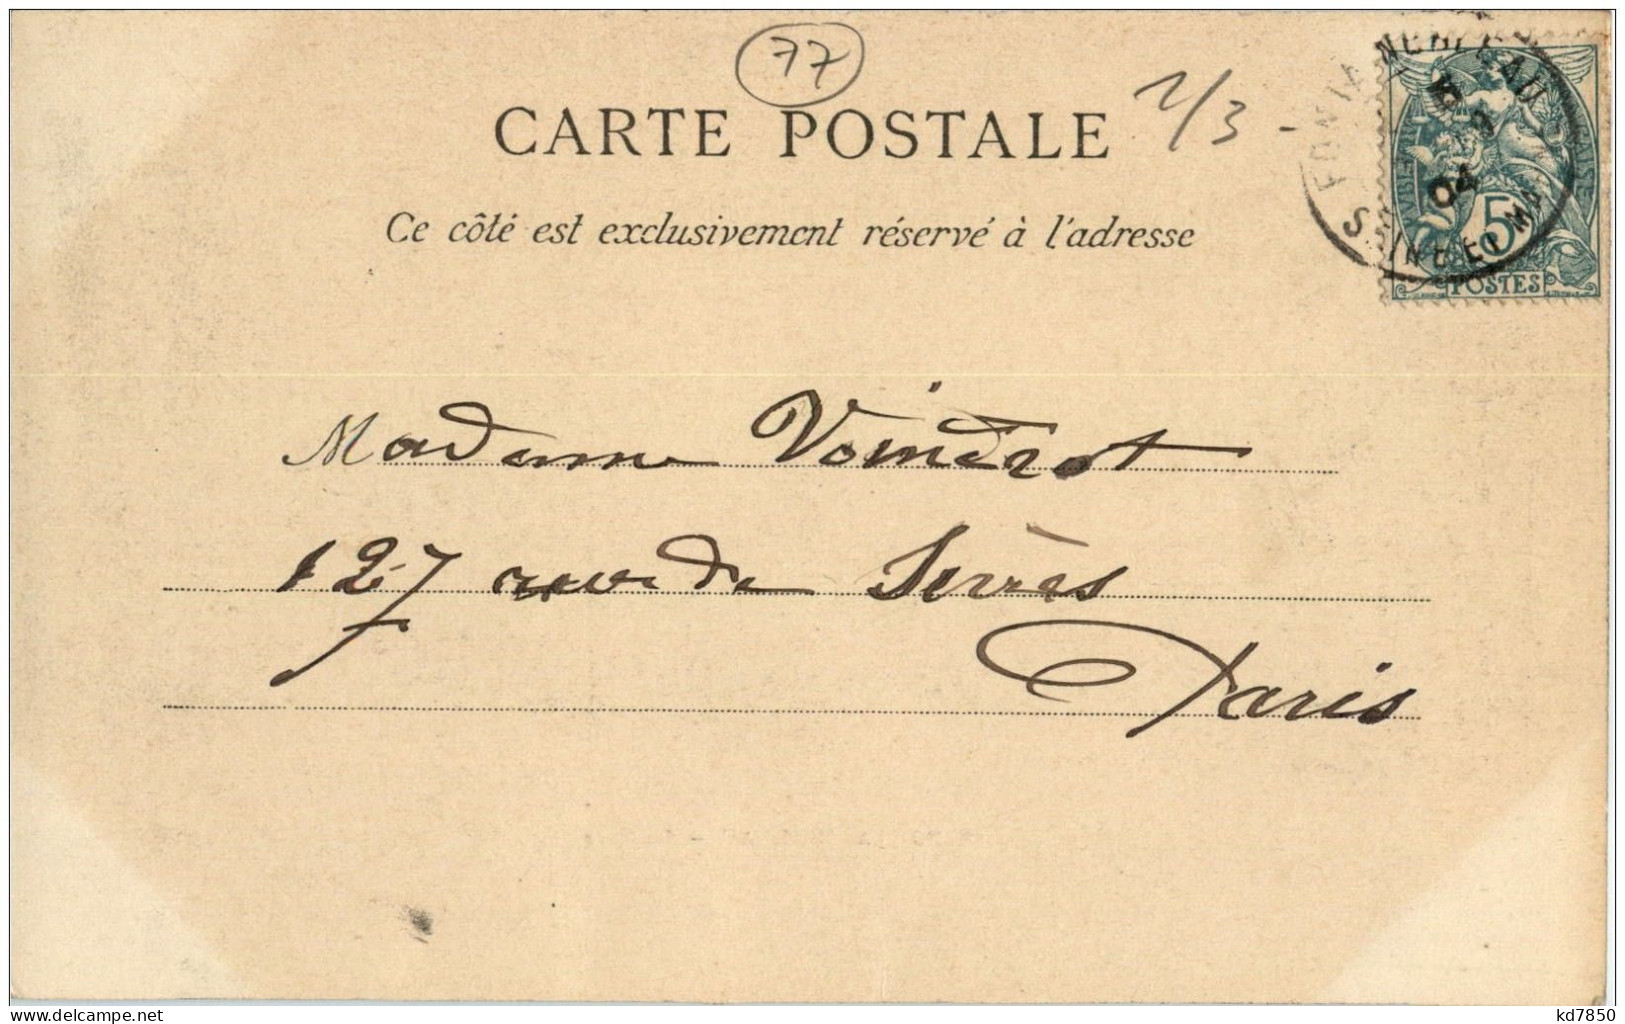 77
CARTE POSTALE
Ce côté est exclusivement réservé à l'adresse
FONTAINEBLEAU
04
SEINE ET M
5
POSTES
Madame Voindrot
127 rue de Sèvres
Paris
delcampe.net
kd7850